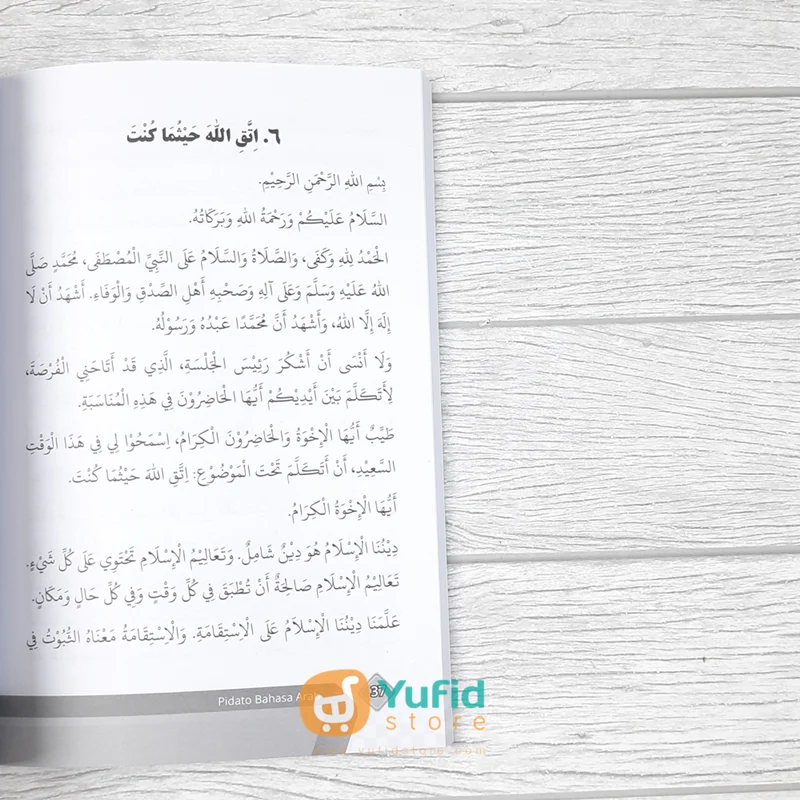 ٦. اِتَّقِ اللهَ حَيْثُمَا كُنْتَ
بِسْمِ اللهِ الرَّحْمَنِ الرَّحِيْمِ.
السَّلَامُ عَلَيْكُمْ وَرَحْمَةُ اللهِ وَبَرَكَاتُهُ.
الْحَمْدُ لِلهِ وَكَفَى، وَالصَّلَاةُ وَالسَّلَامُ عَلَى النَّبِيِّ الْمُصْطَفَى، مُحَمَّدٍ صَلَّى
اللهُ عَلَيْهِ وَسَلَّمَ وَعَلَى آلِهِ وَصَحْبِهِ أَهْلِ الصِّدْقِ وَالْوَفَاءِ. أَشْهَدُ أَنْ لَا
إِلَهَ إِلَّا اللهُ، وَأَشْهَدُ أَنَّ مُحَمَّدًا عَبْدُهُ وَرَسُوْلُهُ.
وَلَا أَنْسَى أَنْ أَشْكُرَ رَئِيْسَ الْجَلْسَةِ، الَّذِي قَدْ أَتَاحَنِي الْفُرْصَةَ،
لِأَتَكَلَّمَ بَيْنَ أَيْدِيْكُمْ أَيُّهَا الْحَاضِرُوْنَ فِي هَذِهِ الْمُنَاسَبَةِ.
طَيِّبٌ أَيُّهَا الْإِخْوَةُ وَالْحَاضِرُوْنَ الْكِرَامُ، اِسْمَحُوْا لِي فِي هَذَا الْوَقْتِ
السَّعِيْدِ، أَنْ أَتَكَلَّمَ تَحْتَ الْمَوْضُوْعِ: اِتَّقِ اللهَ حَيْثُمَا كُنْتَ.
أَيُّهَا الْإِخْوَةُ الْكِرَامُ.
دِيْنُنَا الْإِسْلَامُ هُوَ دِيْنٌ شَامِلٌ. وَتَعَالِيْمُ الْإِسْلَامِ تَحْتَوِي عَلَى كُلِّ شَيْءٍ.
تَعَالِيْمُ الْإِسْلَامِ صَالِحَةٌ أَنْ تُطْبَقَ فِي كُلِّ وَقْتٍ وَفِي كُلِّ حَالٍ وَمَكَانٍ.
عَلَّمَنَا دِيْنُنَا الْإِسْلَامُ عَلَى الْإِسْتِقَامَةِ. وَالْإِسْتِقَامَةُ مَعْنَاهُ الثُّبُوْتُ فِي
Pidato Bahasa Arab 37
Yufid
store
www.yufidstore.com